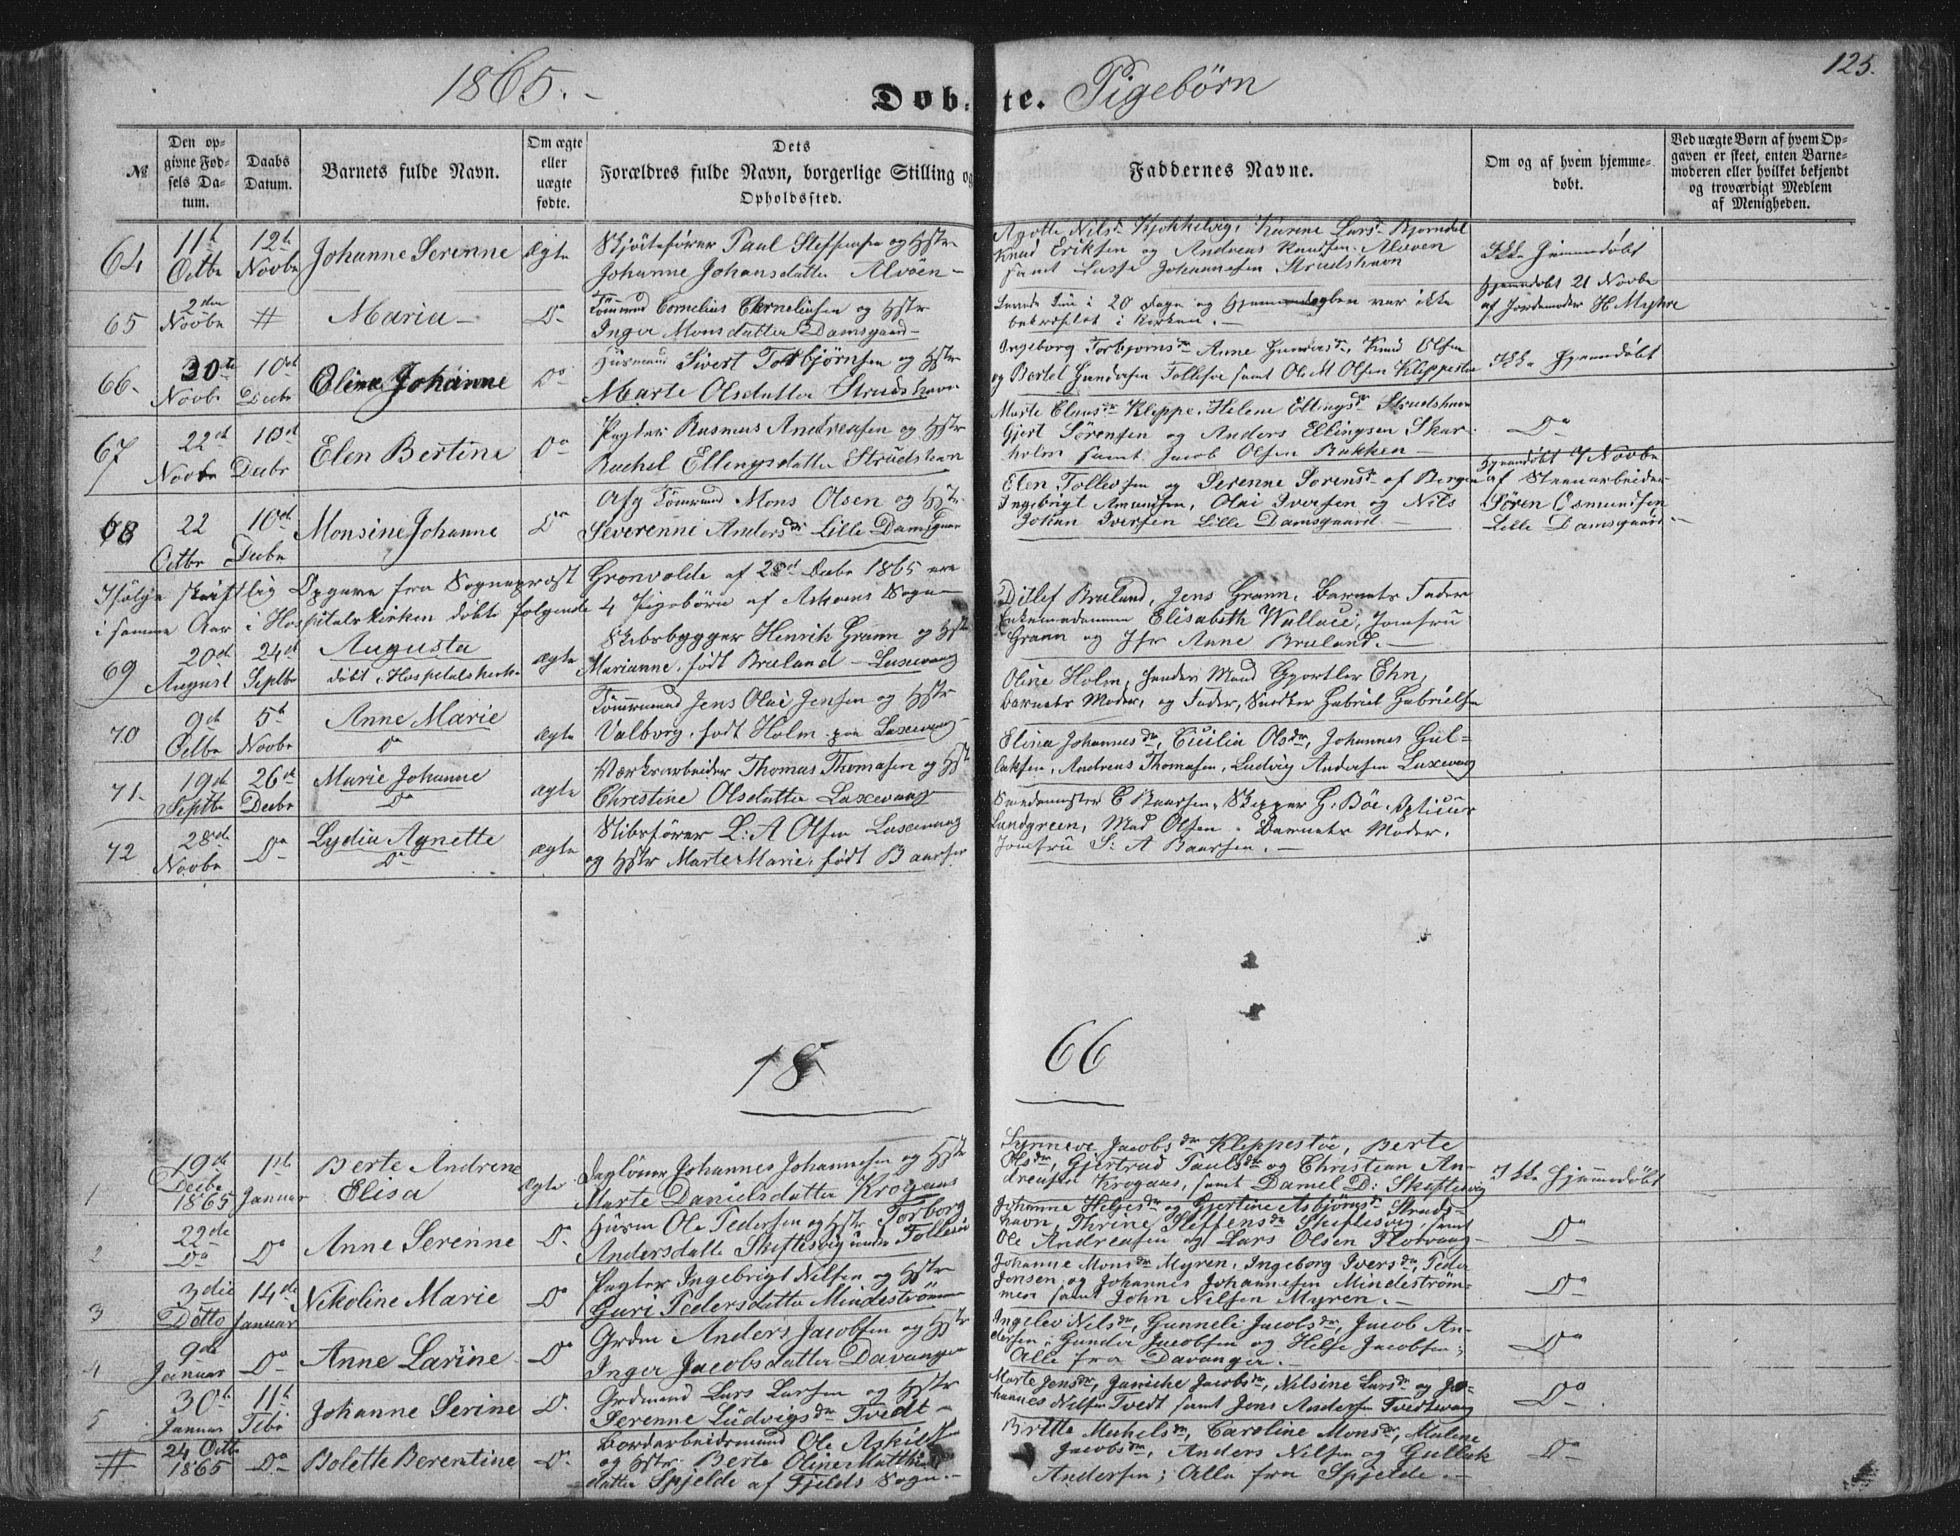 1865.
Døb-te. Pigebörn
125.
№
Den opgivne Fødsels Datum.
Daabs Datum.
Barnets fulde Navn.
Om ægte eller uægte fødte.
Dets Forældres fulde Navn, borgerlige Stilling og Opholdssted.
Faddernes Navne.
Om og af hvem hjemmedøbt.
Ved uægte Børn af hvem Opgaven er skeet, enten Barnemoderen eller hvilket bekjendt og troværdigt Medlem af Menigheden.
64 11te Octbr 12te Novbr Johanne Serenne ægte
Skjöitefører Paul Steffensen og Hstr
Johanne Johansdatter Alvöen
Agotte Nilsdr Kjokkelvig, Karine Larsdr Bjorndal
Knud Eriksen og Andreas Knudsen Alöven
samt Lasse Johannesen Strudshavn
Ikke hjemmedøbt
65 2den Novbr # Maria Do
Tömmmd Cornelius Corneliusen og Hstr
Inger Monsdatter Damsgaard
Levede kun i 20 dage og hjemmedaaben var ikke
bekræftet i Kirken.
Hjemmedøbt 21 Novbr
af Jordemoder H. Myhre
66. 30te Novbr 10de Decbr Elina Johanne Do
Huusmand Sivert Torbjörnsen og Hstr
Marte Olsdatter Strudshavn
Ingeborg Torbjornsdr Anne Gundersdr, Knud Olsen
og Bertel Gundersen Follesø samt Ole M Olsen Kleppestø
Ikke hjemmedøbt
67 22de Novbr 10de Decbr Elen Bertine Do
Pagter Rasmus Andreasen og Hstr
Rachel Ellingsdatter Strudshavn
Marte Clausdr Kleppe, Helene Ellingsdr Strudshavn
Gjert Sörensen og Anders Ellingsen Skarholm
samt Jacob Olsen Bakken
Do
68 22 Octbr 10de Decbr Monsine Johanne Do
Afg Tömmmd Mons Olsen og Hstr
Severenne Andersdr Lille Damsgaard
Elen Tollevsen og Serenne Sorensdr af Bergen
Ingebrigt Amundsen, Olai Iversen og Nils
Johan Iversen Lille Damsgaard
Hjemmedøbt 7 Novbr
af Steenarbeider
Sören Osmundsen
Lille Damsgaard
Ifølge skriftlig Opgave fra Sognepræst Gronvolde af 28de Decbr 1865 ere
i samme Aar i Hospitalskirken døbte følgende 4 Pigebörn af Askøens Sogn
69 20de August 24de Septbr Augusta
døbt i Hospitalskirken ægte
Skibsbygger Henrik Grann og Hstr
Marianne, født Bruland Laxevaag
Ditlef Bruland, Jens Grann, Barnets Fader
Enkemadamme Elisabeth Wallace, Jomfru
Grann og Jfr Anne Bruland.
70 9de Octbr 5te Novbr Anne Marie
Do ægte
Tömmermd Jens Olai Jensen og Hstr
Valborg, født Holm paa Laxevaag
Oline Holm, hendes Mand Gjortler Ehn,
Barnets Moder, og Fader, Snedker Gabriel Gabrielsen
71. 19de Septbr 26de Decbr Marie Johanne
Do ægte
Værksarbeider Thomas Thomasen og Hstr
Christine Olsdatter Laxevaag
Elina Johannesdr, Cicilia Olsdr, Johannes Gullaksen,
Andreas Thomasen, Ludvig Andersen Laxevaag
72 28de Novbr Do Lydia Agnette
Do ægte
Skibsfører L: A Olsen Laxevaag
og Hstr Marte Marie, født Baarsen
C Baarsen, Skipper G. Böe,
Lundgreen, Mad Olsen, Barnets Moder,
Jomfru S: A Baarsen.
18
66
1 19de Decbr 1865 1ste Januar Berte Andrine Elisa ægte
Daglöner Johannes Johannesen og Hstr
Marte Danielsdatter Krogaas
Synneve Jacobsdr Kleppestöe, Berte
Olsdr, Gjertrud Paulsdr og Christian Andreasen
Krogaas, samt Daniel D: Skiftesvig
Ikke hjemmedøbt
2 22de Do Do Anne Serenne Do
Huusm Ole Pedersen og Hstr Torborg
Andersdatt Skiftesvig under Follesø
Johanne Helgesdr og Gjertine Asbjörnsdr Strudshavn,
Thrine Steffensdr Skiftesvig, samt
Ole Andreasen og Lars Olsen Flotvaag
Do
3 3die Ditto 14de Januar Nikoline Marie Do
Pagter Ingebrigt Nilsen og Hstr
Guri Pedersdatter Mindeströmmen
Johanne Monsdr Myren, Ingeborg Iversdr, Peder
Jonsen og Johannes Johannesen Mindeströmmen
samt John Nilsen Myren.
Do
4 9de Januar Do Anne Larine Do
Grdm Anders Jacobsen og Hstr
Inger Jacobsdatter Davanger
Ingelev Nilsdr, Gunneli Jacobsdr, Jacob Andersen,
Gunder Jacobsen og Helje Jacobsen;
Alle fra Davanger.
Do
5 30te Januar 11te Febr Johanne Serine Do
Grdmand Lars Larsen og Hstr
Serenne Ludvigsdr Tvedt
Marte Jensdr, Janicke Jacobsdr, Nilsine Larsdr og Johannes
Nilsen Tvedt samt Jens Andersen Tvedtevaag
Do
# 24 Octbr 1865 Do Bolette Berentine Do
Bordarbeidsmand Ole Askildsen
og Hstr. Berte Oline Matthiasdatter
Spjelde af Fjelds Sogn.
Britte Michelsdr, Caroline Monsdr, Malene
Jacobsdr, Anders Nilsen og Gullak
Andersen; Alle fra Spjelde.
Do